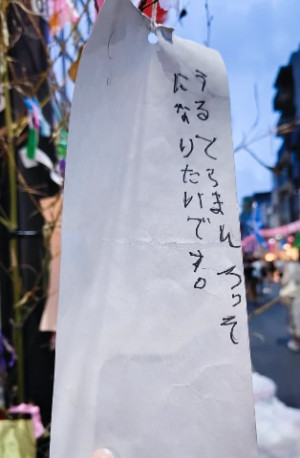 うるとらまん ろっそ
になりたいです。